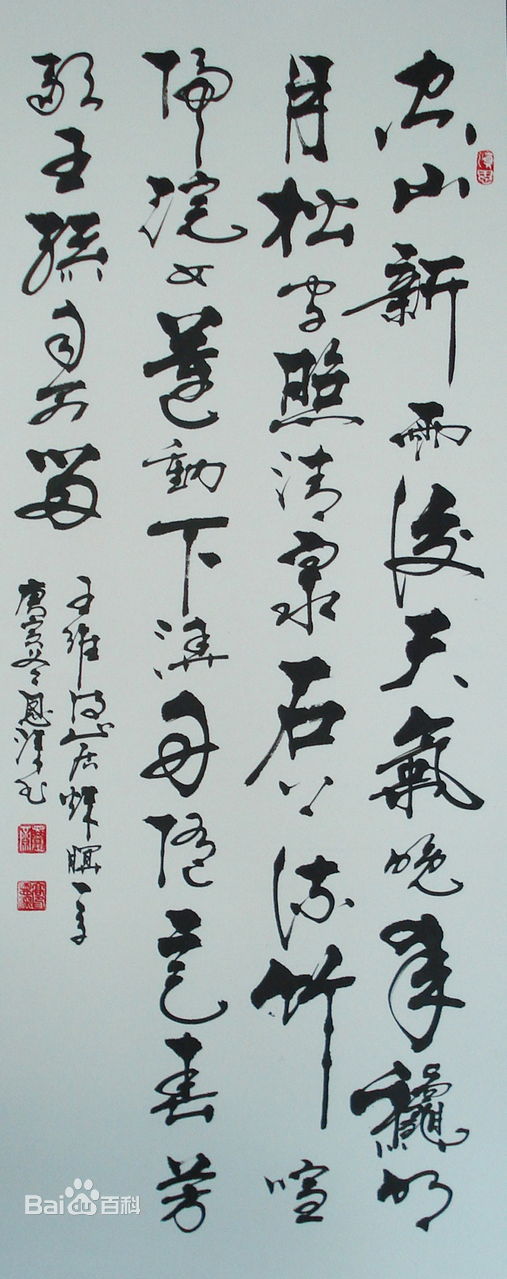 空山新雨後天氣晚來龝明
月松間照清泉石上流竹喧
歸浣女蓮動下漁舟隨意春芳
歇王孫自可留
王維詩山居秋暝一首
庚寅冬書
Bai du 百科